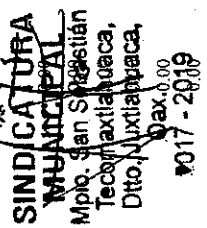 SINDICATURA
MUNICIPAL
Mpio. San Sebastián
Tecomaxtlahuaca,
Dtto. Juxtlahuaca,
Oax.
0.00
2017 - 2019
0.00